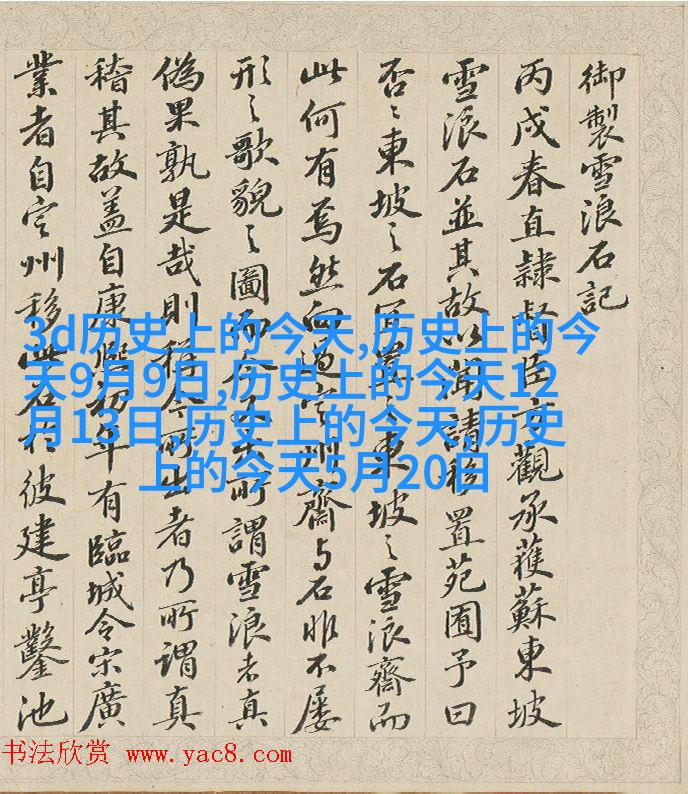 御製雪浪石記
丙戌春直隷督臣方觀承獲蘇東坡
雪浪石並其故以聞請移置苑囿予曰
否〻東坡〻石東坡〻雪浪齋而
此何有焉然向過定州齋与石非不屡
形〻歌貌〻圖而今所謂雪浪者真
偽果孰是哉則稱今所出者乃所謂真
稽其故盖自康熙初年有臨城令宋廣
業者自定州移此石於彼建亭鑿池
3d历史上的今天,历史上的今
天9月9日,历史上的今天12
月13日,历史上的今天,历史
上的今天5月20日
书法欣赏 www.yac8.com